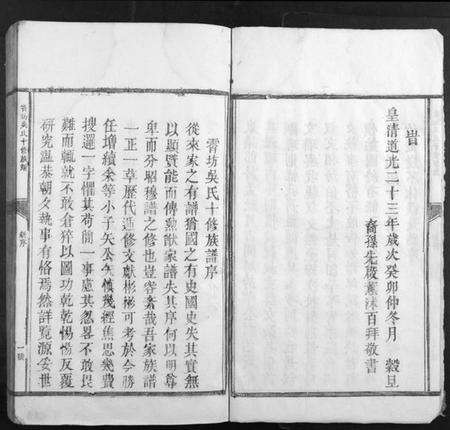 旹
皇清道光二十三年歲次癸卯仲冬月 穀旦
裔孫先 薰沐百拜敬書
青坊吳氏十修族譜
新序
一號
青坊吳氏十修族譜序
從來家之有譜猶國之有史國史失其實無
以顯賢能而傳勲猷家譜失其序何以明尊
卑而分昭穆譜之修也豈容紊哉吾家族譜
一正一草歷代迭修文獻彬彬可考於今勝
任增續余等小子矢公矢慎幾經焦思幾費
搜選一字懼其苟簡一事慮其忽畧不敢畏
難而輒就不敢倉猝以圖功乾乾惕惕反覆
研究溫恭朝夕執事有恪焉然詳覧源委世